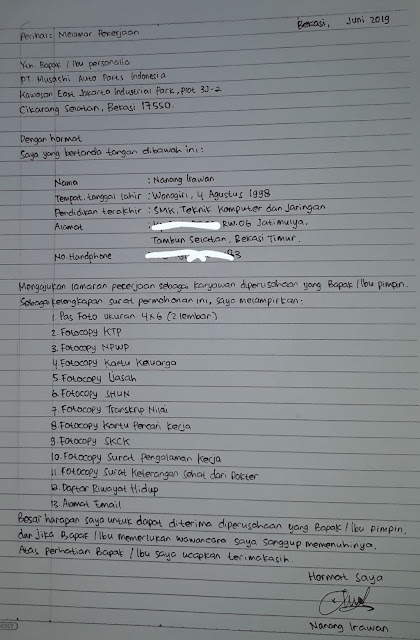 Bekasi, Juni 2019
Perihal : Melamar Pekerjaan
Yth Bapak / Ibu personalia
PT Musashi Auto Parts Indonesia
Kawasan East Jakarta Industrial Park, plot 3J-2
Cikarang Selatan, Bekasi 17550.
Dengan hormat
Saya yang bertanda tangan dibawah ini :
Nama : Nanang Irawan
Tempat, tanggal lahir : Wonogiri, 4 Agustus 1998
Pendidikan terakhir : SMK, Teknik Komputer dan Jaringan
Alamat : RW.06 Jatimulya,
Tambun Selatan, Bekasi Timur.
No. Handphone : 83
Mengajukan lamaran pekerjaan sebagai karyawan diperusahaan yang Bapak / Ibu pimpin.
Sebagai kelengkapan surat permohonan ini, saya melampirkan :
1. Pas Foto ukuran 4x6 (2 lembar)
2. Fotocopy KTP
3. Fotocopy NPWP
4. Fotocopy Kartu Keluarga
5. Fotocopy Ijasah
6. Fotocopy SHUN
7. Fotocopy Transkrip Nilai
8. Fotocopy Kartu Pencari Kerja
9. Fotocopy SKCK
10. Fotocopy Surat Pengalaman Kerja
11. Fotocopy Surat Keterangan Sehat dari Dokter
12. Daftar Riwayat Hidup
13. Alamat Email
Besar harapan saya untuk dapat diterima diperusahaan yang Bapak / Ibu pimpin,
dan jika Bapak / Ibu memerlukan wawancara saya sanggup memenuhinya.
Atas perhatian Bapak / Ibu saya ucapkan terimakasih.
Hormat Saya
Nanang Irawan